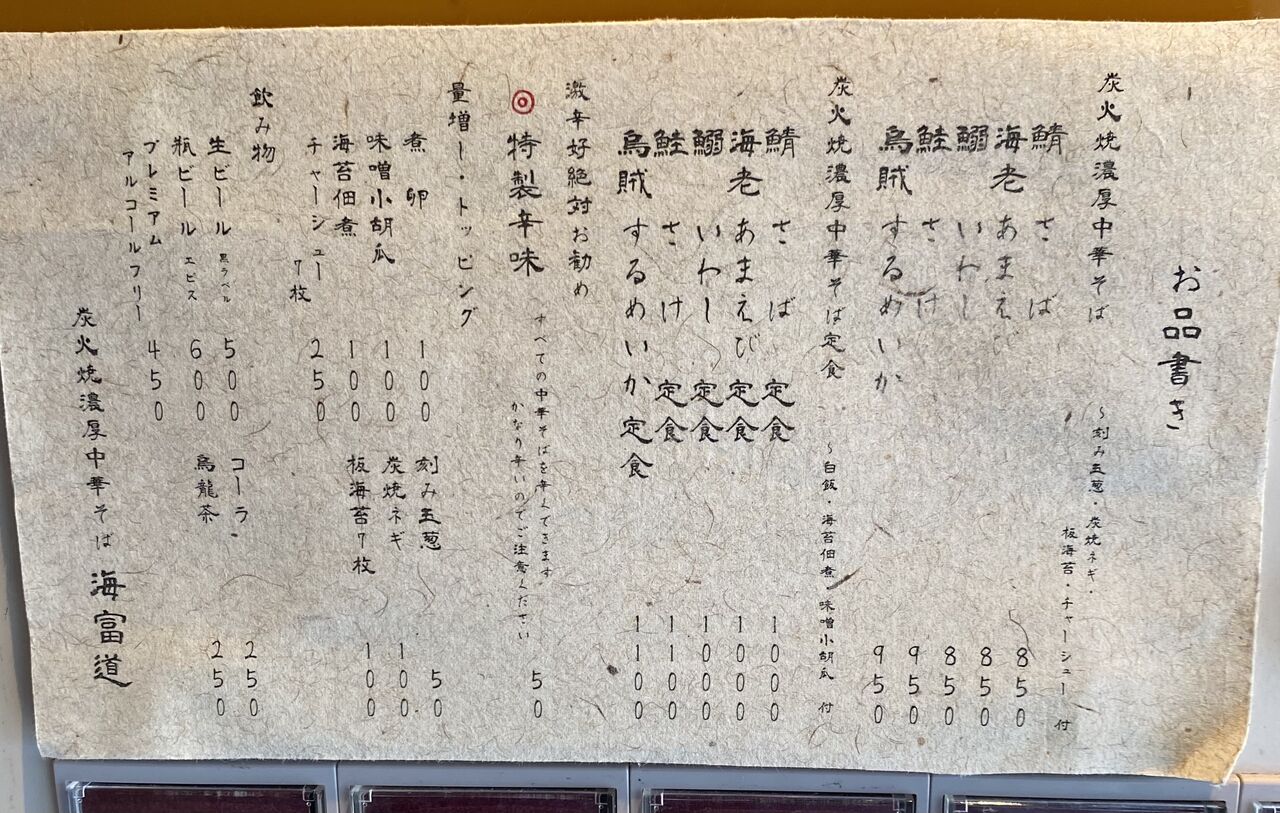 お品書き
炭火焼濃厚中華そば
~刻み玉葱・炭焼ネギ・
板海苔・チャーシュー 付
鯖 さば 850
海老 あまえび 850
鰯 いわし 850
鮭 さけ 950
烏賊 するめいか 950
炭火焼濃厚中華そば定食 ~白飯・海苔佃煮・味噌小胡瓜 付
鯖 さば 定食 1000
海老 あまえび 定食 1000
鰯 いわし 定食 1000
鮭 さけ 定食 1100
烏賊 するめいか 定食 1100
激辛好絶対お勧め
◎ 特製辛味 50
すべての中華そばを辛くできます
かなり辛いのでご注意ください
量増し・トッピング
煮卵 100 刻み玉葱 50
味噌小胡瓜 100 炭焼ネギ 100
海苔佃煮 100 板海苔7枚 100
チャーシュー 250
7枚
飲み物
生ビール 黒ラベル 500 コーラ・ 250
瓶ビール エビス 600 烏龍茶 250
プレミアム
アルコールフリー 450
炭火焼濃厚中華そば 海富道